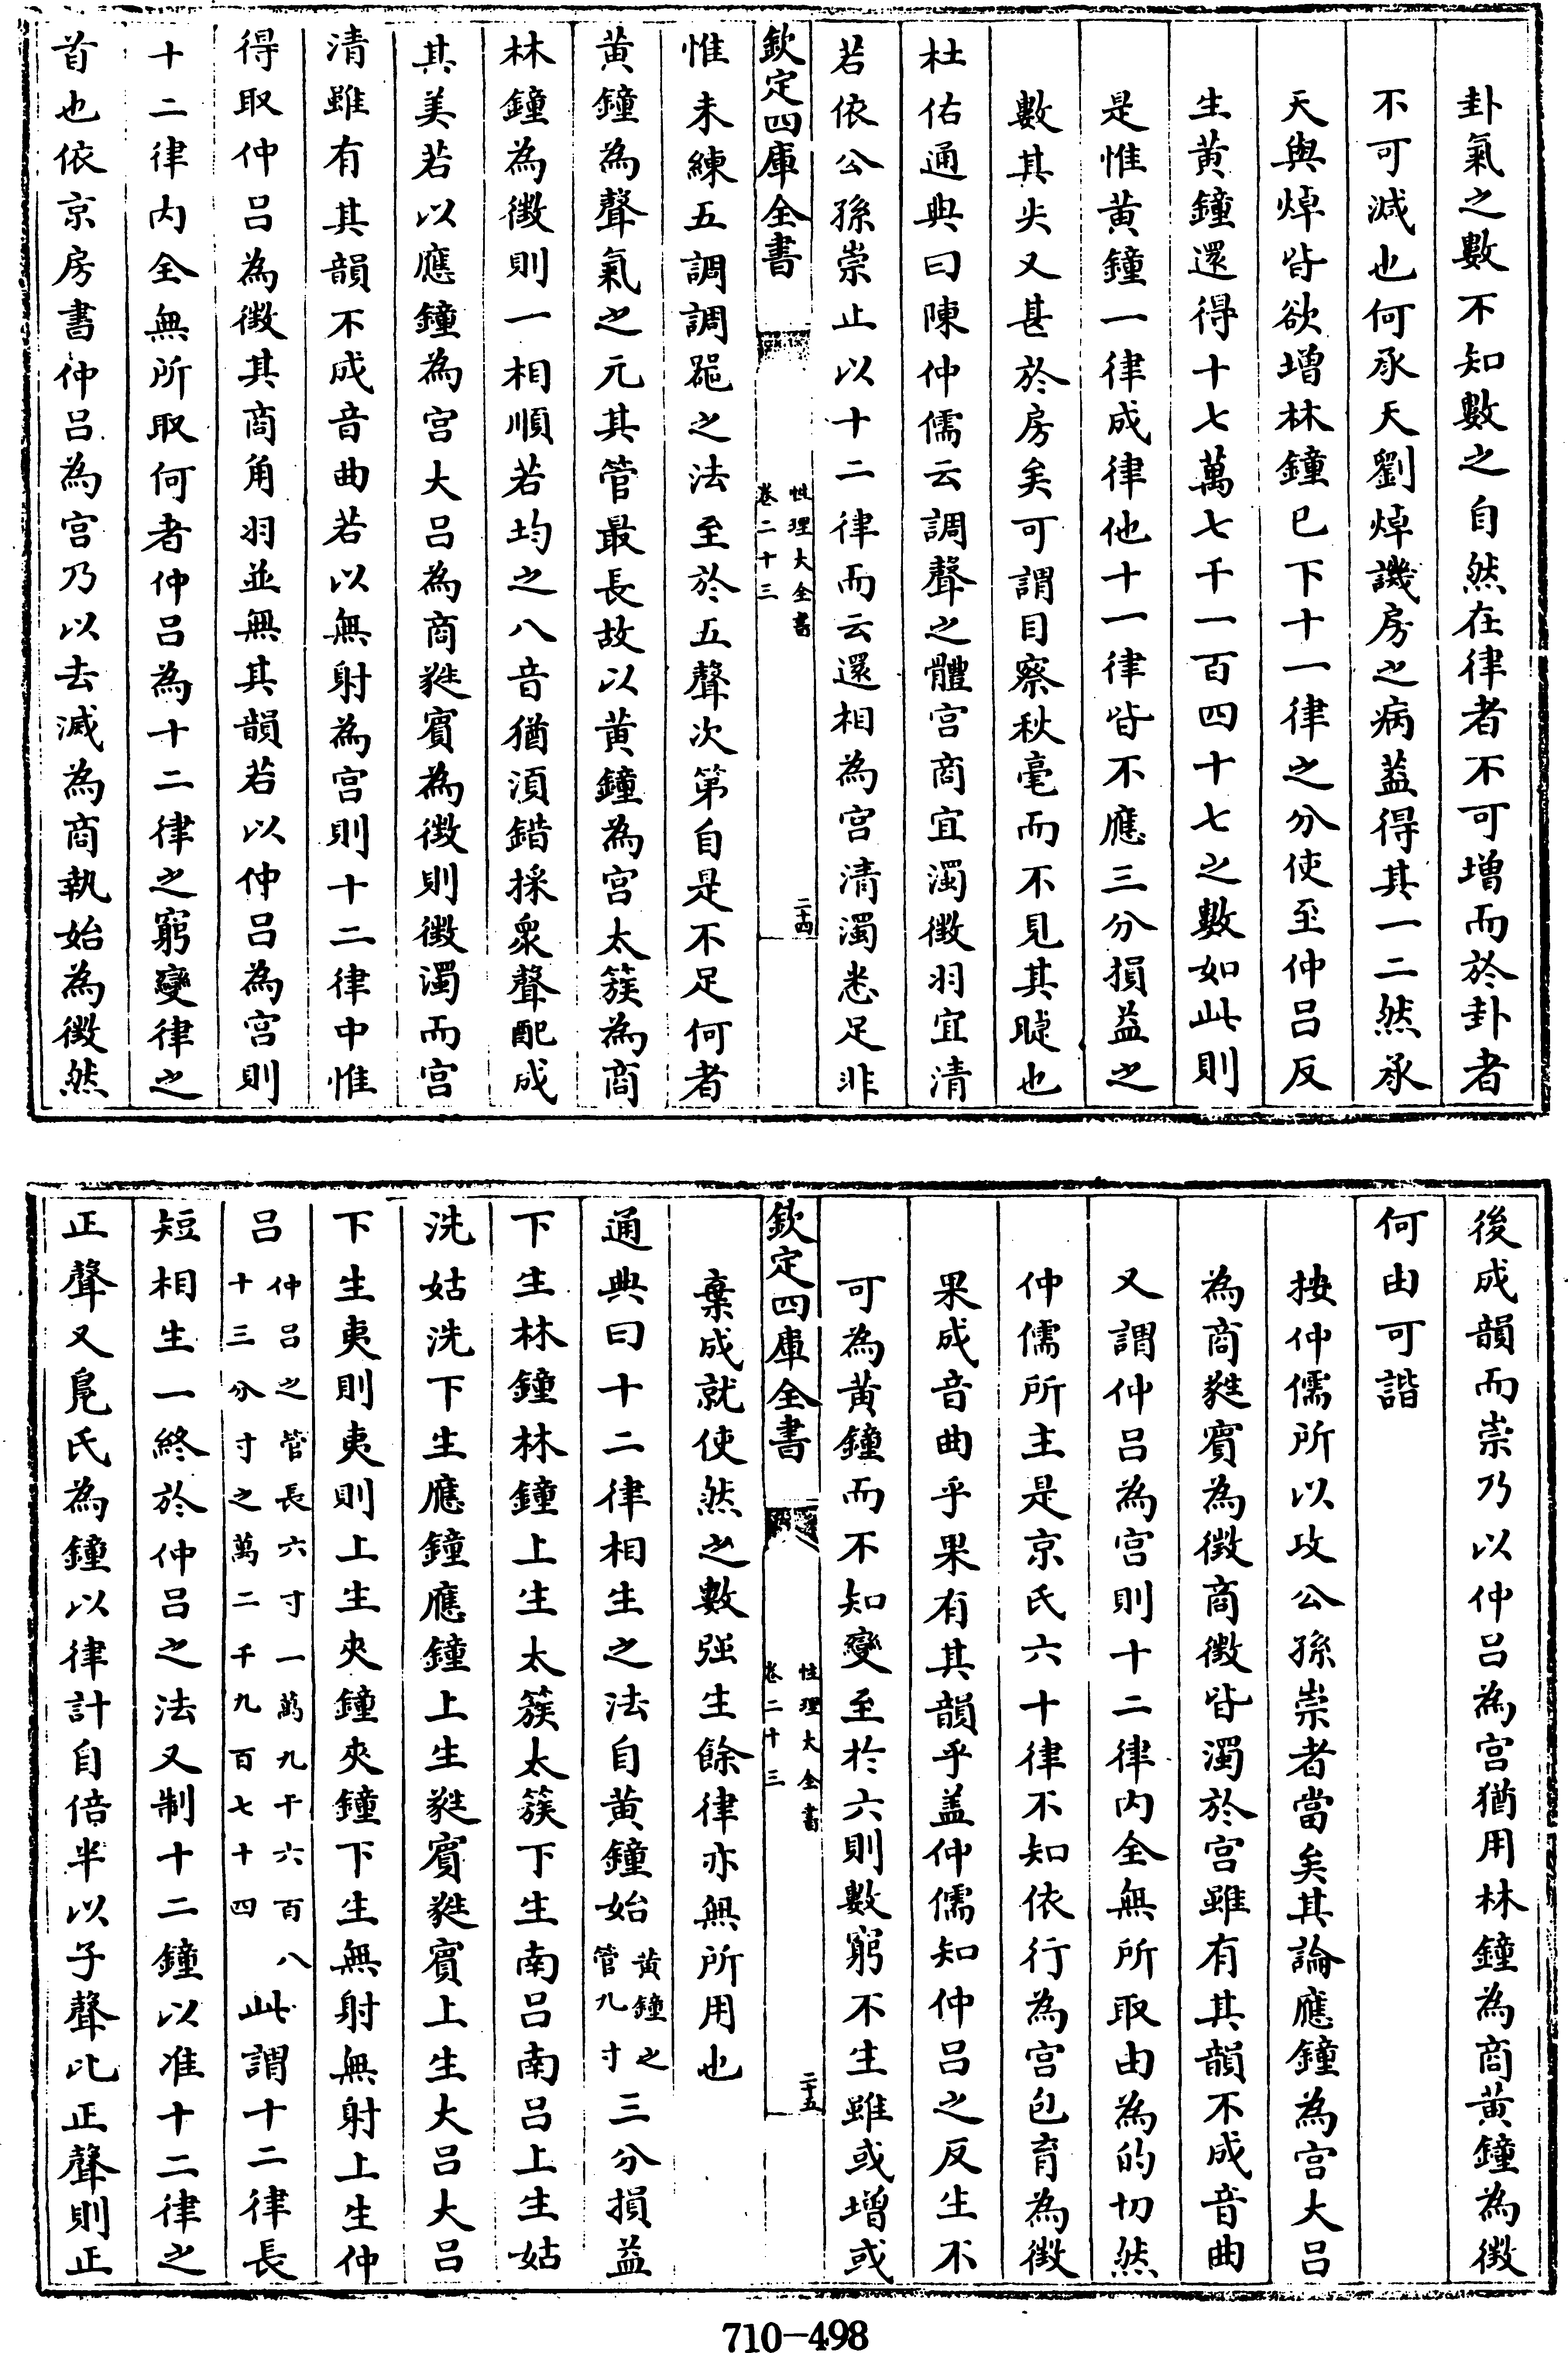 卦氣之數不知數之自然在律者不可增而於卦者
不可減也何承天劉焯譏房之病蓋得其一二然承
天與焯皆欲增林鐘已下十一律之分使至仲吕反
生黄鐘還得十七萬七千一百四十七之數如此則
是惟黄鐘一律成律他十一律皆不應三分損益之
數其失又甚於房矣可謂目察秋毫而不見其睫也
杜佑通典曰陳仲儒云調聲之體宫商宜濁徴羽宜清
若依公孫崇止以十二律而云還相為宫清濁悉足非
欽定四庫全書
性理大全書
卷二十三
二十四
惟未練五調調器之法至於五聲次第自是不足何者
黄鐘為聲氣之元其管最長故以黄鐘為宫太簇為商
林鐘為徴則一相順若均之八音猶須錯採衆聲配成
其美若以應鐘為宫大吕為商蕤賓為徴則徴濁而宫
清雖有其韻不成音曲若以無射為宫則十二律中惟
得取仲吕為徴其商角羽並無其韻若以仲吕為宫則
十二律内全無所取何者仲吕為十二律之窮變律之
首也依京房書仲吕為宫乃以去滅為商執始為徴然
後成韻而崇乃以仲吕為宫猶用林鐘為商黄鐘為徴
何由可諧
按仲儒所以攻公孫崇者當矣其論應鐘為宫大吕
為商蕤賓為徴商徴皆濁於宫雖有其韻不成音曲
又謂仲吕為宫則十二律内全無所取由為的切然
仲儒所主是京氏六十律不知依行為宫包育為徴
果成音曲乎果有其韻乎蓋仲儒知仲吕之反生不
可為黄鐘而不知變至於六則數窮不生雖或增或
欽定四庫全書
性理大全書
卷二十三
二十五
棄成就使然之數强生餘律亦無所用也
通典曰十二律相生之法自黄鐘始黄鐘之管九寸三分損益
下生林鐘林鐘上生太簇太簇下生南吕南吕上生姑
洗姑洗下生應鐘應鐘上生蕤賓蕤賓上生大吕大吕
下生夷則夷則上生夾鐘夾鐘下生無射無射上生仲
吕仲吕之管長六寸一萬九千六百八十三分寸之萬二千九百七十四此謂十二律長
短相生一終於仲吕之法又制十二鐘以准十二律之
正聲又鳧氏為鐘以律計自倍半以子聲比正聲則正
710-498